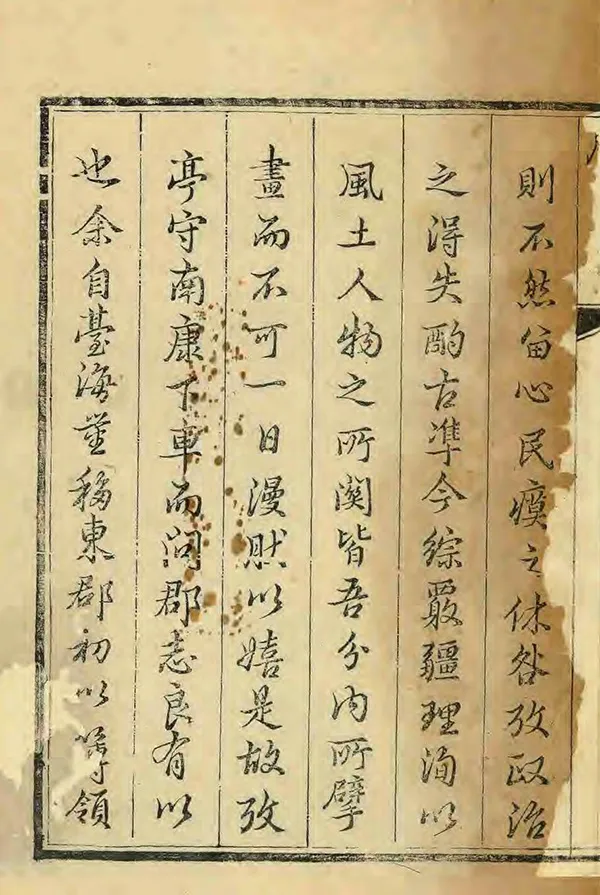 則不然留心民瘼之休咎攷政治
之得失酌古準今綜覈疆理以
風土人物之所關皆吾分内所擘
畫而不可一日漫肰以嬉是故攷
亭守南康下車而問郡志良有以
也余自臺海量移東郡初以領